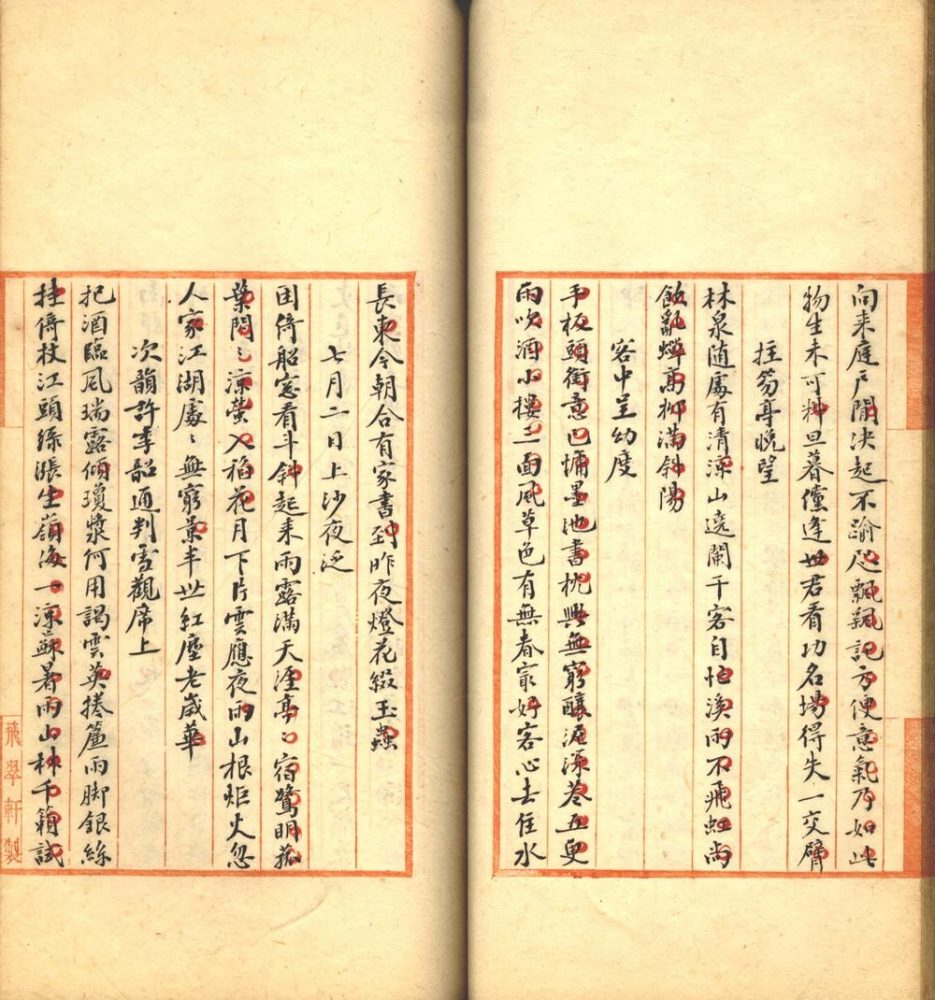 向来庭戶閒決起不踰咫飄飄託方便意氣乃如此
物生未可料旦暮儻逢世君看功名場得失一交臂
拄笏亭晚望
林泉隨處有清涼山遶闌干客自忙溪雨不飛虹尚
飲亂蟬高柳滿斜陽
客中呈幼度
手板頭銜意已慵墨池書枕興無窮釀泥深巷五更
雨吹酒小樓三面風草色有無春最好客心去住水
長東今朝合有家書到昨夜燈花綴玉蟲
七月二日上沙夜泛
困倚船窓看斗斜起来雨露滿天涯亭〻宿鷺明菰
葉閃〻涼螢入稻花月下片雲應夜雨山根炬火忽
人家江湖處〻無窮景半世紅塵老歲華
次韻許季韶通判雪觀席上
把酒臨風瑞露傾瓊漿何用謁雲英捲簾雨脚銀絲
挂倚杖江頭綠漲生嶺海一涼蘇暑雨山林千籟試
飛翠軒製